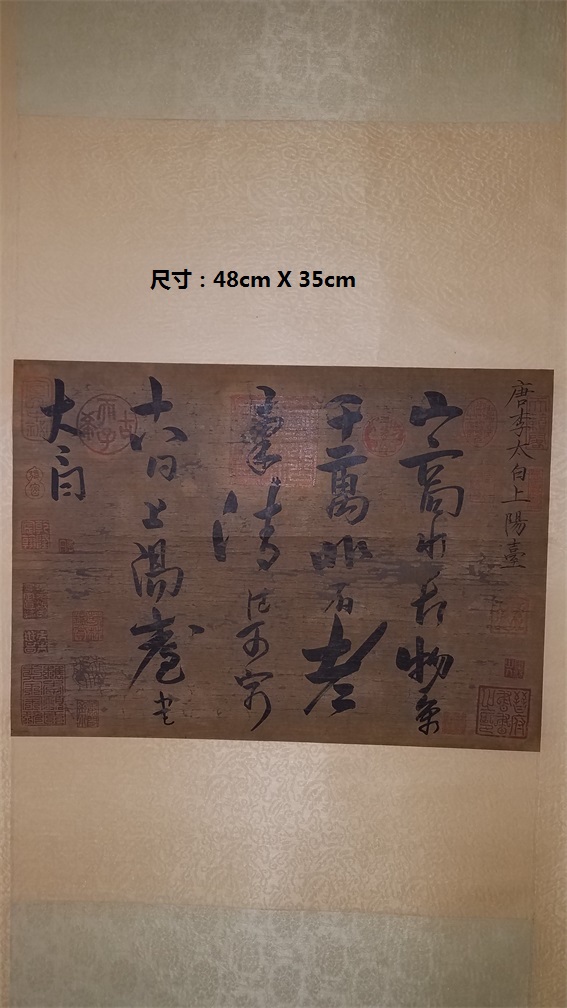 尺寸：48cm X 35cm
唐李太白上陽臺
山高水長物象
千萬非有老
筆清壯可窮
十八日上陽臺書
太白
古希天子